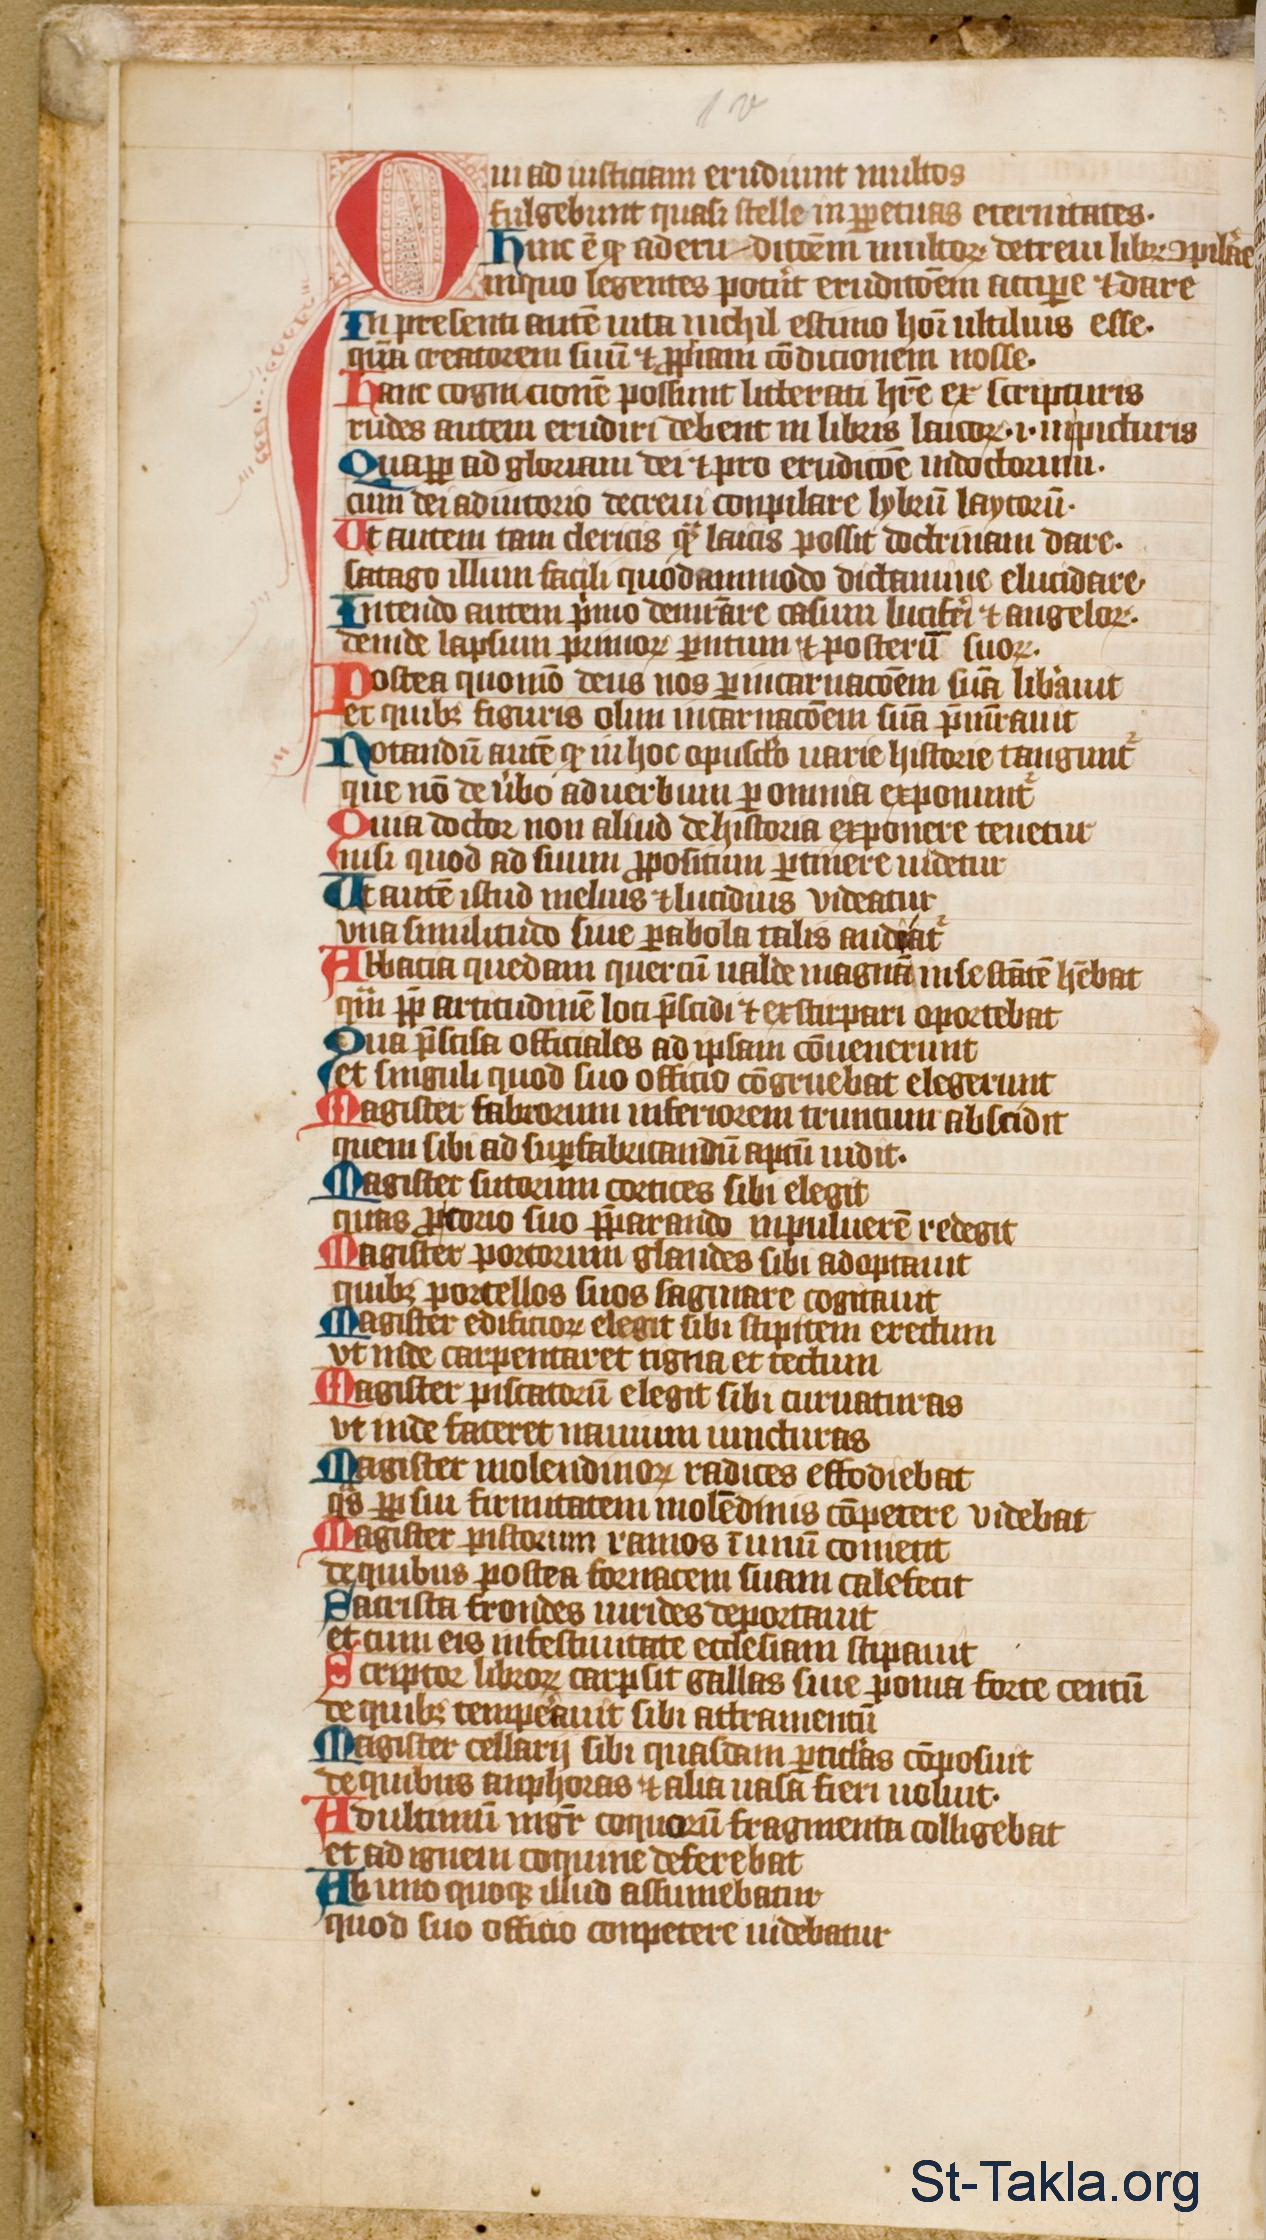 1v
Qui ad iusticiam erudiunt multos
fulgebunt quasi stelle in ꝑpetuas eternitates·
Hinc ē qꝫ ad eru dicōem multoꝝ decreui libꝝ ↄpilare
in quo legentes potūt eruditōem accipe ⁊ dare
In presenti autē uita nichil estimo hoī utilius esse·
qͣm creatorem suū ⁊ ꝓpͥam cōdicionem nosse·
Hanc cognicionē possunt litterati hr̄e ex scripturis
rudes autem erudiri debent in libris laicoꝝ·i·in picturis
Quaꝓp ad gloriam dei ⁊ pro erudicōe indoctorum·
cum dei adiutorio decreui conpilare lybrū laycorū·
Ut autem tam clericis qͣ laicis possit doctrinam dare·
satago illum facili quodammodo dictamine elucidare
Intendo autem pͥmo demr̄are casum lucifeͬi ⁊ angeloꝝ·
deinde lapsum primoꝝ ꝑntum ⁊ posterū suoꝝ·
Postea quomō deus nos ꝑ incarnacōem suā libͣauit
et quibꝫ figuris olim incarnacōem suā p̄mr̄auit
Notandū autē qꝫ in hoc opusclͦo uarie historie tangunt᷑
que nō de ūbo ad uerbum ꝑ omnia exponunt᷑
Quia doctor non aliud de historia exponere tenetur
nisi quod ad suum ꝓpositum ꝑtinere uidetur
Ut autē istud melius ⁊ lucidius videatur
vna similitudo siue ꝑabola talis audiat᷑
Abbacia quedam quercū ualde magnā in se stātē hēbat
qͣm ꝓp artitudinē loci p̄scidi ⁊ exstirpari oportebat
Qua p̄scisa officiales ad ipsam cōuenerunt
et singuli quod suo officio cōgruebat elegerunt
Magister fabrorum inferiorem truncum abscidit
quem sibi ad suꝑfabricandū aptū uidit·
Magister sutorum cortices sibi elegit
quas ꝑ corio suo p̄parando in puluerē redegit
Magister porcorum glandes sibi adoptauit
quibꝫ porcellos suos saginare cogitauit
Magister edificioꝝ elegit sibi stipitem erectum
vt inde carpentaret tigna et tectum
Magister piscatorū elegit sibi curuaturas
vt inde faceret nauium iuncturas
Magister molendinoꝝ radices effodiebat
qͣs ꝓp sui firmitatem molēdinis cōpetere videbat
Magister pistorum ramos ī unū coniecit
de quibus postea fornacem suam calefecit
Sacrista frondes uirides deportauit
et cum eis in festiuitate ecclesiam stipauit
Scriptor libroꝝ carpsit gallas siue poma forte centū
de quibꝫ tempeͬauit sibi attramentū
Magister cellarij sibi quasdam ꝑticͣlas cōposuit
de quibus anphoras ⁊ alia uasa fieri uoluit·
Ad ultimū mgr̄ coquorū fragmenta colligebat
et ad ignem coquine deferebat
Ab uno quoqꝫ illud assumebatur
quod suo officio conpetere uidebatur
St-Takla.org